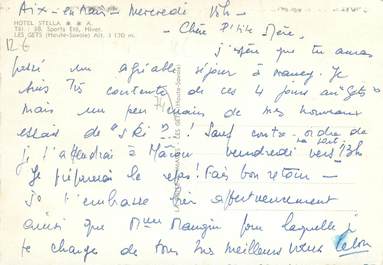 Aix-en-Bains - Mercredi 15h -
HOTEL STELLA ★★ A.
Tél. : 38. Sports Eté, Hiver.
LES GETS (Haute-Savoie) Alt. 1170 m.
12 €
Chère P'tite Mère,
j'espère que tu auras
passé un agréable séjour à Nancy. Je
suis très contente de ces 4 jours aux "Gets"
mais un peu moins de mes nouveaux
essais de "ski" ! Sauf contre-ordre de
ta part
je t'attendrai à Mâcon vendredi vers 13h
Je préparerai le repas ! Fais bon retour -
je t'embrasse bien affectueusement
ainsi que Mme Mangin pour laquelle je
te charge de tous mes meilleurs vœux
LES GETS (Haute-Savoie)